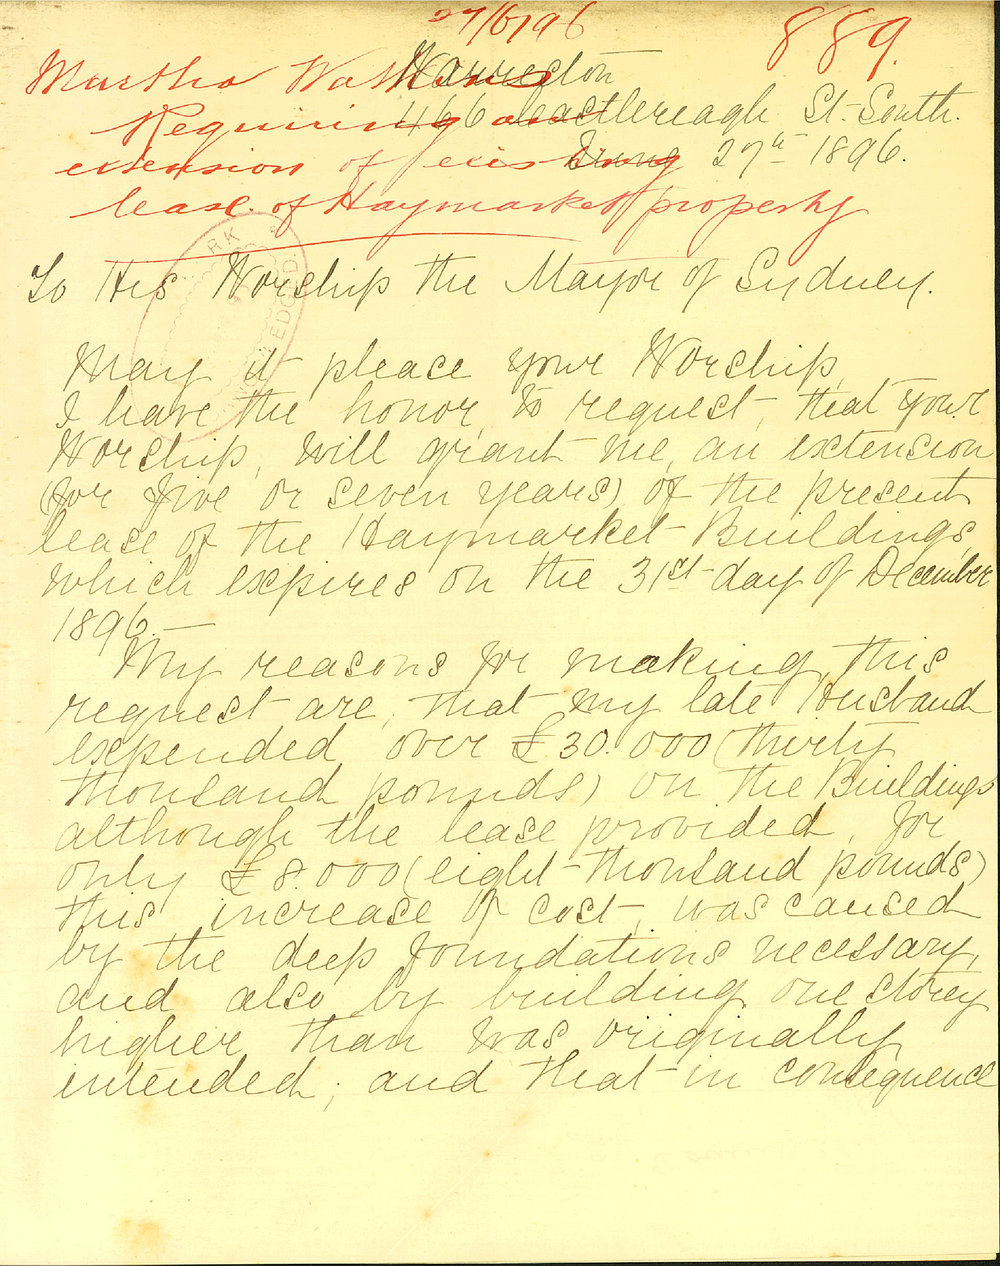 27/6/96
889.
Martha
Requiring an
extension of existing
lease of Haymarket property
466 Castlereagh St. South.
June 27th 1896.
To His Worship the Mayor of Sydney.
May it please your Worship,
I have the honor, to request, that your
Worship, will grant me, an extension
(for five or seven years) of the present
lease of the Haymarket Buildings,
which expires on the 31st day of December
1896. —
My reasons for making this
request are, that my late Husband
expended over £30.000 (thirty
thousand pounds) on the Buildings
although the lease provided, for
only £8.000 (eight thousand pounds)
this increase of cost, was caused
by the deep foundations necessary,
and also, by building one storey
higher than was originally
intended, and that in consequence